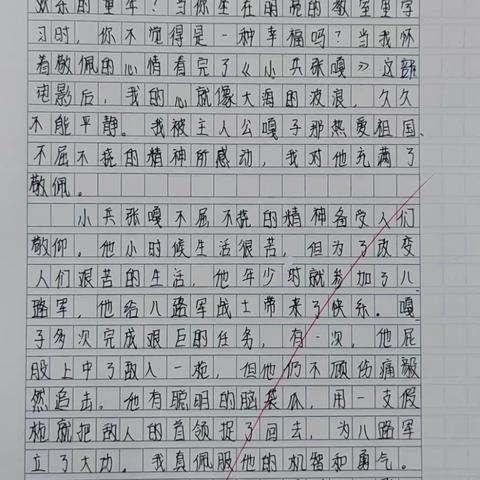 欢乐的童年？当你坐在明亮的教室里学
习时，你不觉得是一种幸福吗？当我怀
着敬佩的心情看完了《小兵张嘎》这部
电影后，我的心就像大海的波浪，久久
不能平静。我被主人公嘎子那热爱祖国、
不屈不挠的精神所感动，我对他充满了
敬佩。
小兵张嘎不屈不挠的精神备受人们
敬仰。他小时候生活很苦，但为了改变
人们艰苦的生活，他年少时就参加了八
路军，他给八路军战士带来了快乐。嘎
子多次完成艰巨的任务，有一次，他屁
股上中了敌人一枪，但他仍不顾伤痛毅
然追击。他有聪明的脑袋瓜，用一支假
枪就把敌人的首领捉了回去，为八路军
立了大功。我真佩服他的机智和勇气。